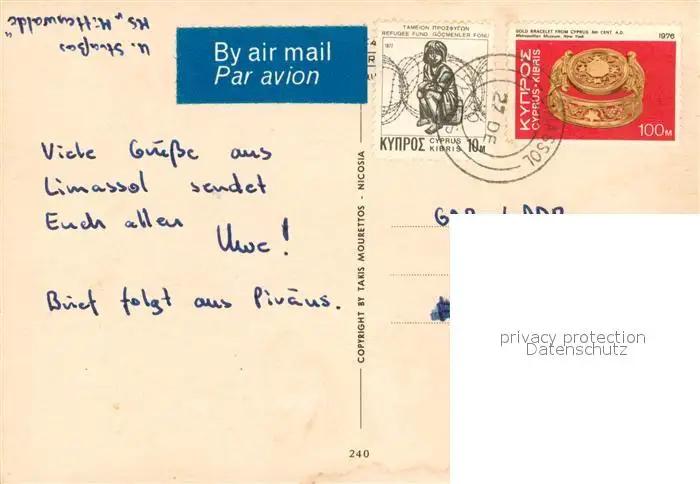 U. Straßas
MS „Mittenwalde"
By air mail
Par avion
ΤΑΜΕΙΟΝ ΠΡΟΣΦΥΓΩΝ
REFUGEE FUND GÖÇMENLER FONU
1977
ΚΥΠΡΟΣ CYPRUS KIBRIS 10M
GOLD BRACELET FROM CYPRUS 6th CENT. A.D.
Metropolitan Museum, New York
1976
ΚΥΠΡΟΣ
CYPRUS-KIBRIS
100M
27 DE
ASSOL
Viele Grüße aus
Limassol sendet
Euch allen
Uwe!
Brief folgt aus Piräus.
COPYRIGHT BY TAKIS MOURETTOS - NICOSIA
240
privacy protection
Datenschutz